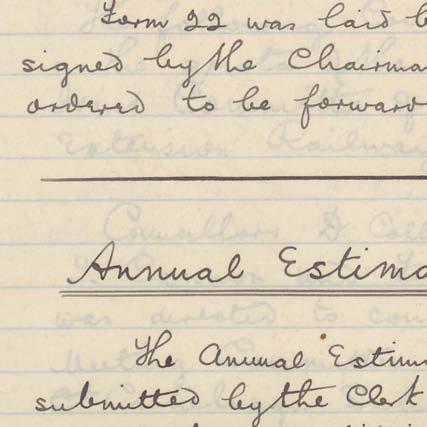 Form 22 was laid b
signed by the Chairma
ordered to be forward
Annual Estima
The Annual Estim
submitted by the Clerk